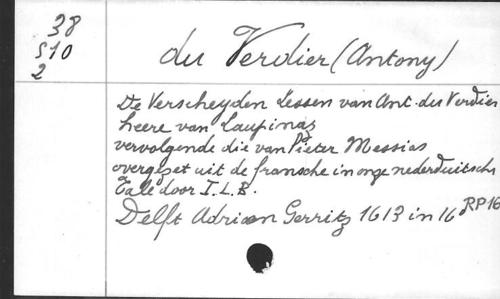 38
S10
2
du Verdier (Antony)
De Verscheyden Lessen van Ant. du Verdier
heere van Laupinaz
vervolgende die van Pieter Messias
overgezet uit de fransche in onze nederduitsche
Tale door I.L.B.
Delft Adriaen Gerritz 1613 in 16
RP16